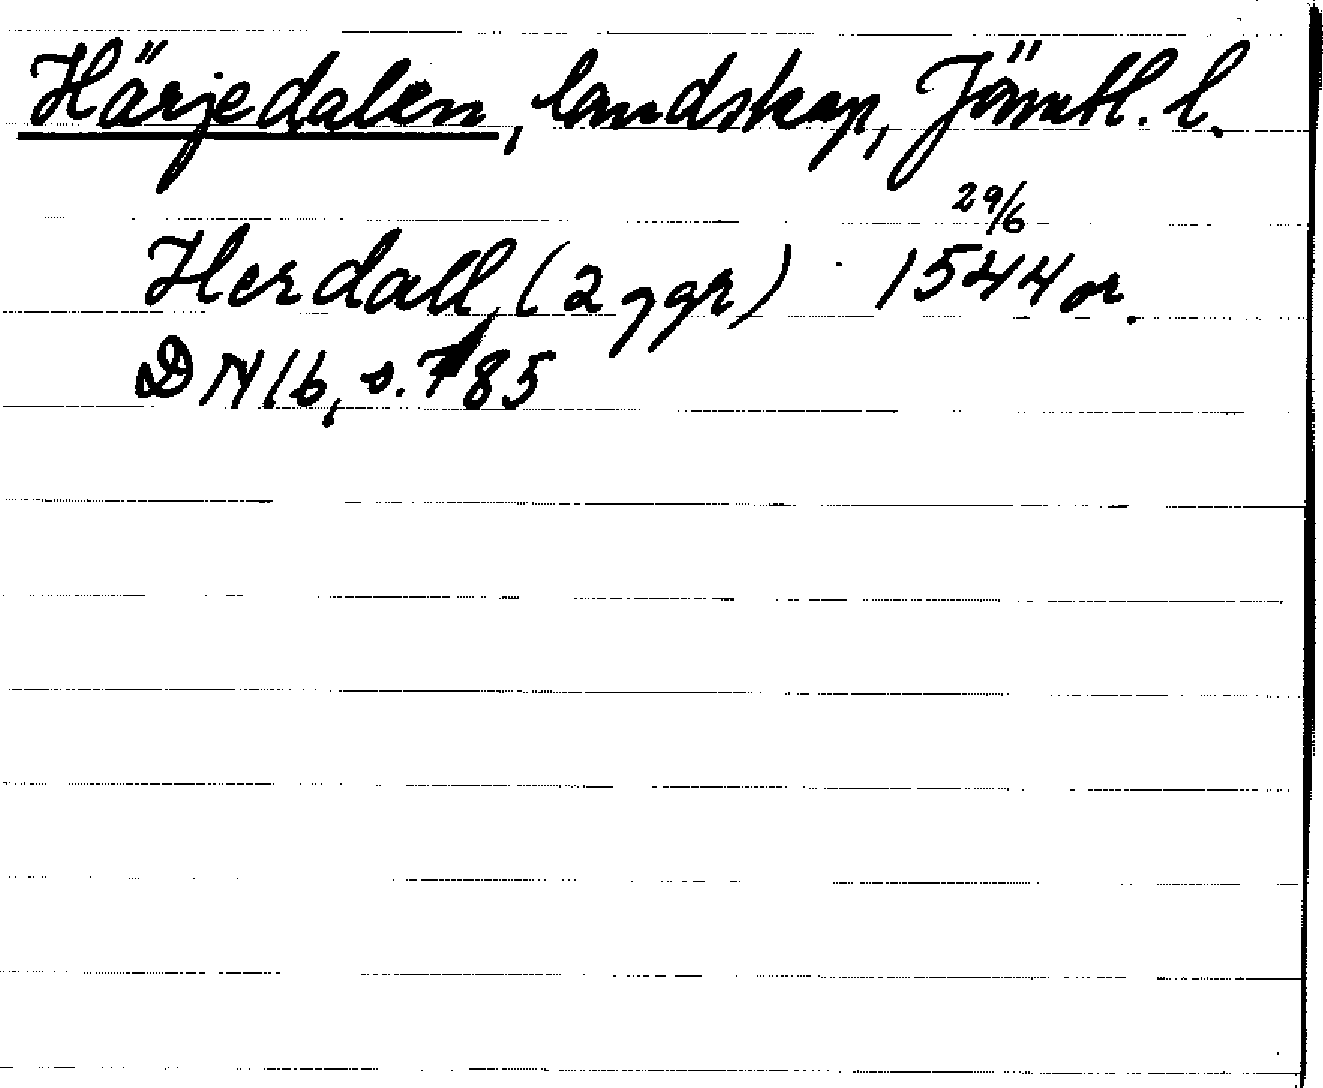 Härjedalen, landskap, Jämtl. l.
Herdall (2 ggr) 29/6 1544 or.
DN 16, s. 785